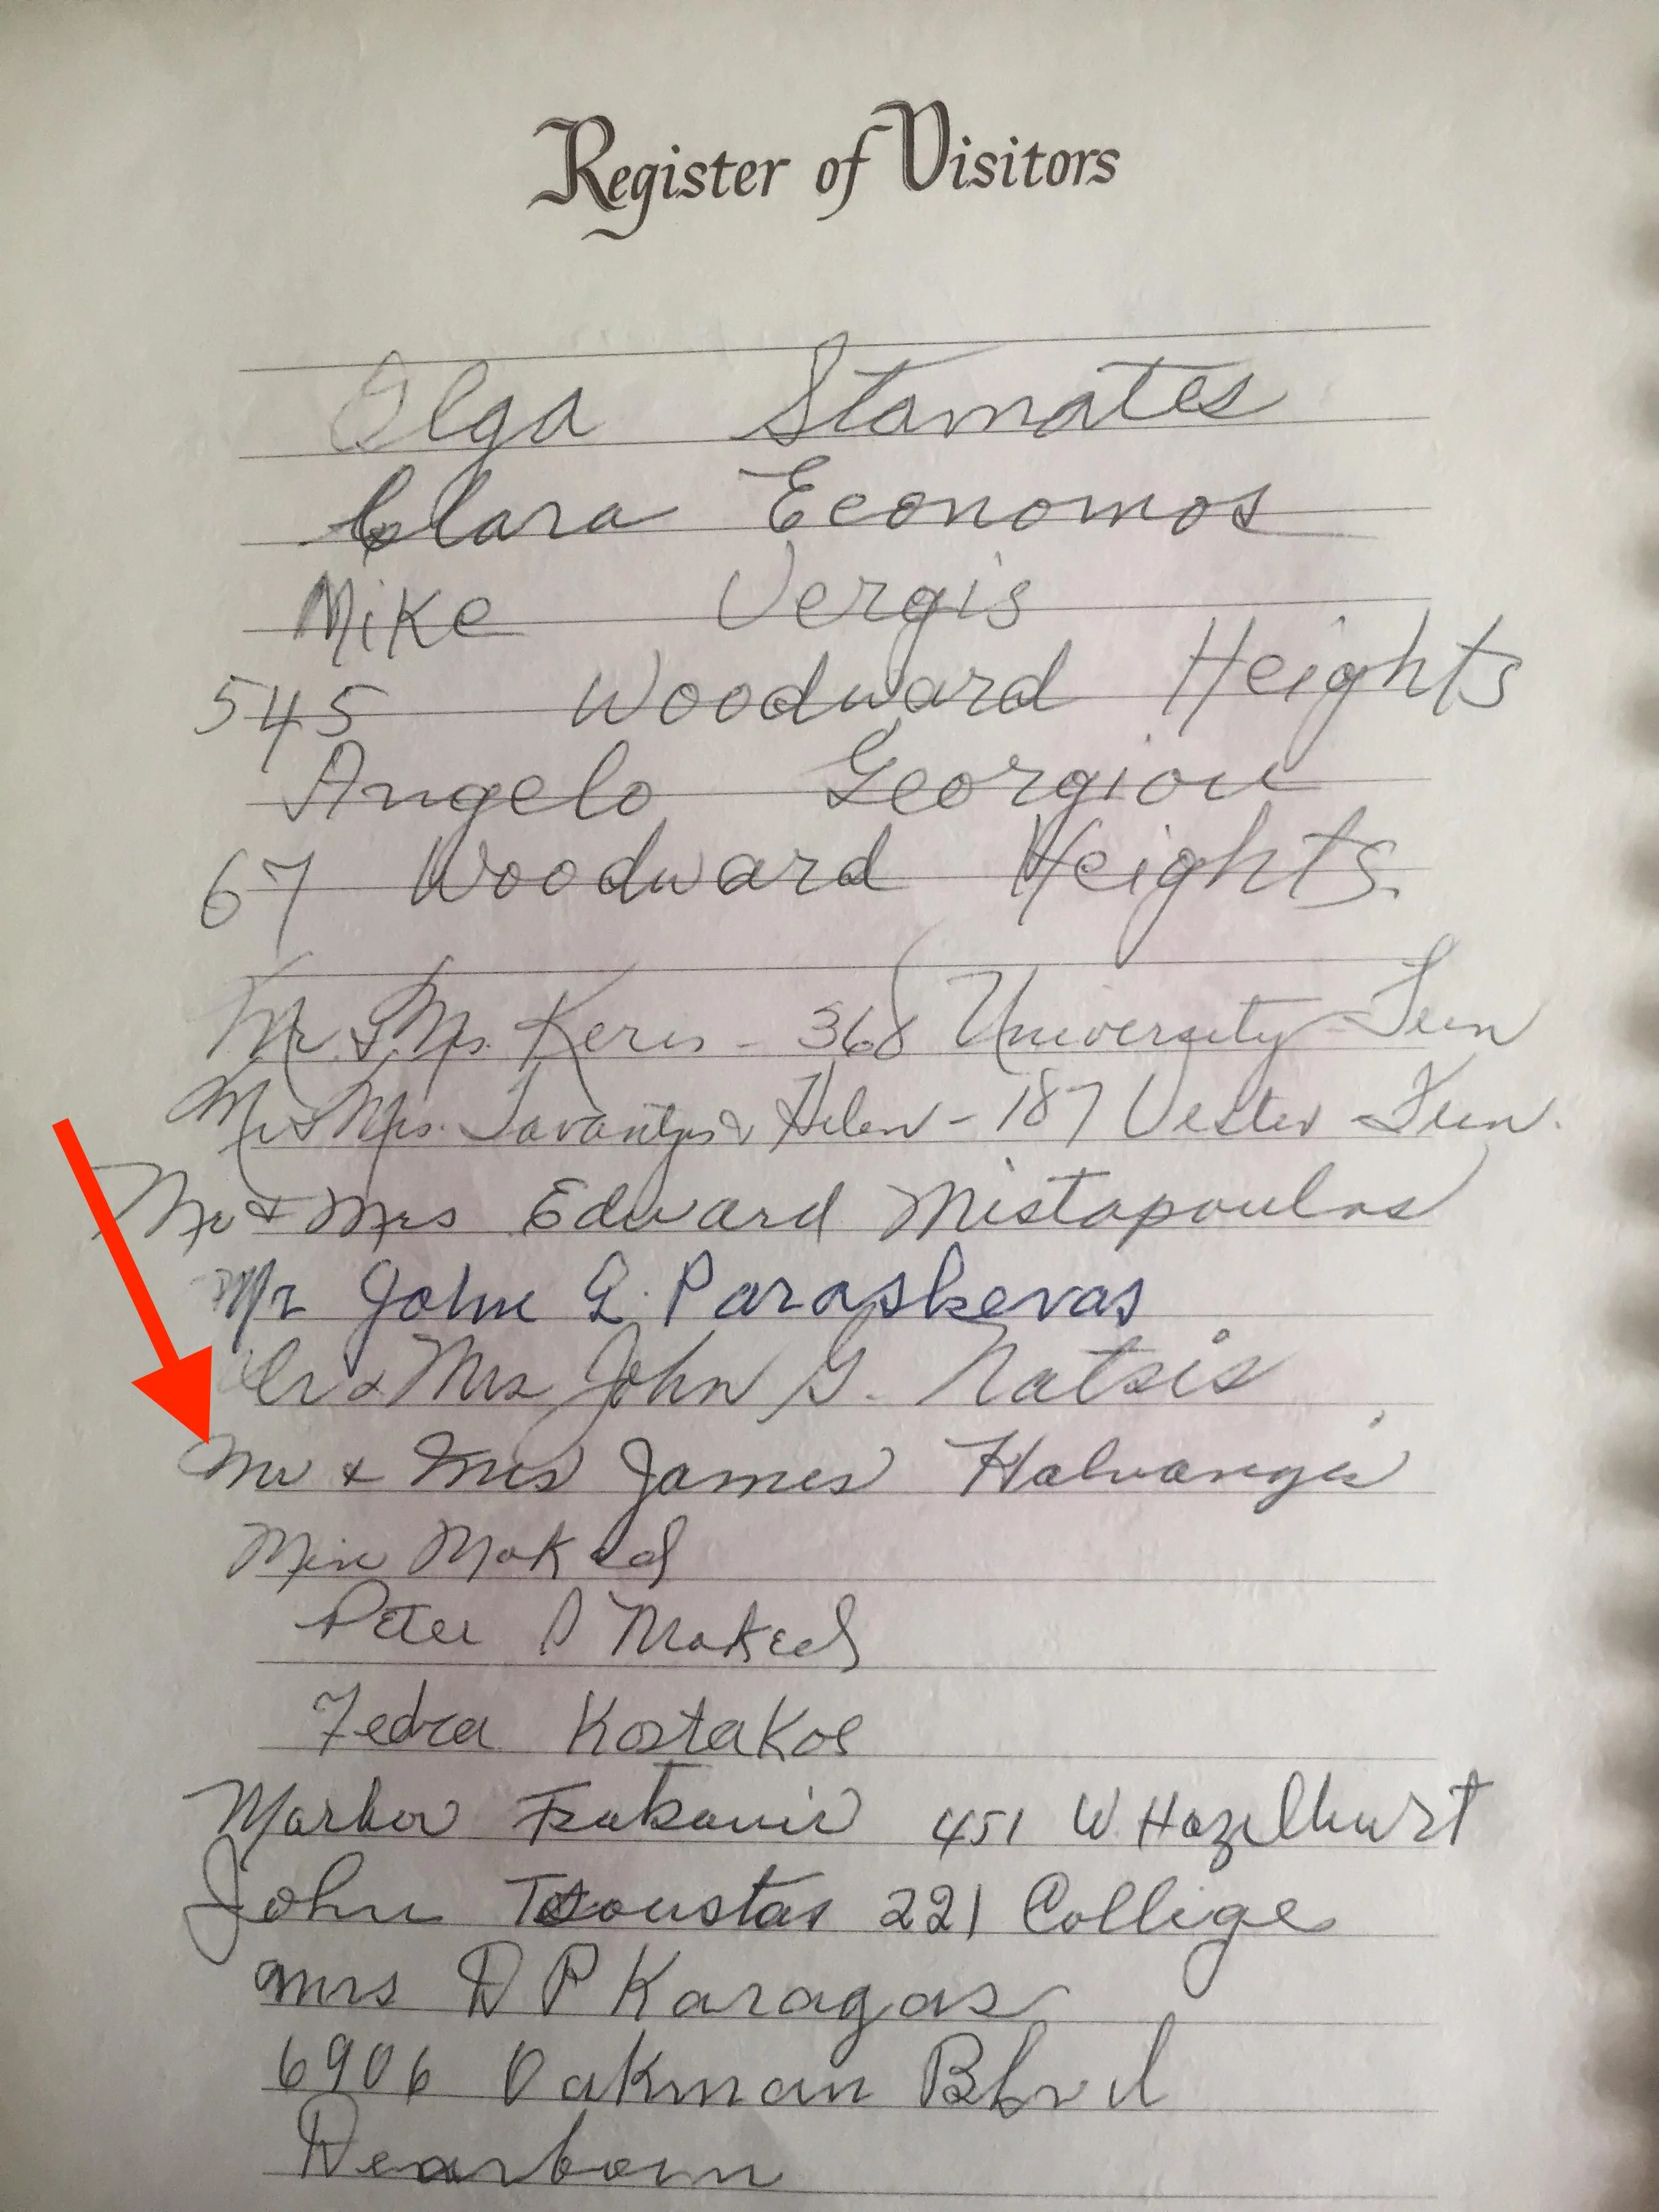 Register of Visitors
Olga Stamates
Clara Economos
Mike Vergis
545 Woodward Heights
Angelo Georgiou
67 Woodward Heights.
Mr & Mrs. Keros - 368 University - Fern
Mr & Mrs. & Helen - 187 Vester - Fern.
Mr & Mrs Edward Mistopoulos
Mr John G. Paraskevas
Mr & Mrs John G. Natsis
Mr & Mrs James Halvangis
Mrs Maked
Peter P Makeds
Fedra Kostakos
Markov 451 W. Hazelhurst
John Tsoustas 221 College
Mrs D P Karagas
6906 Oakman Blvd
Dearborn